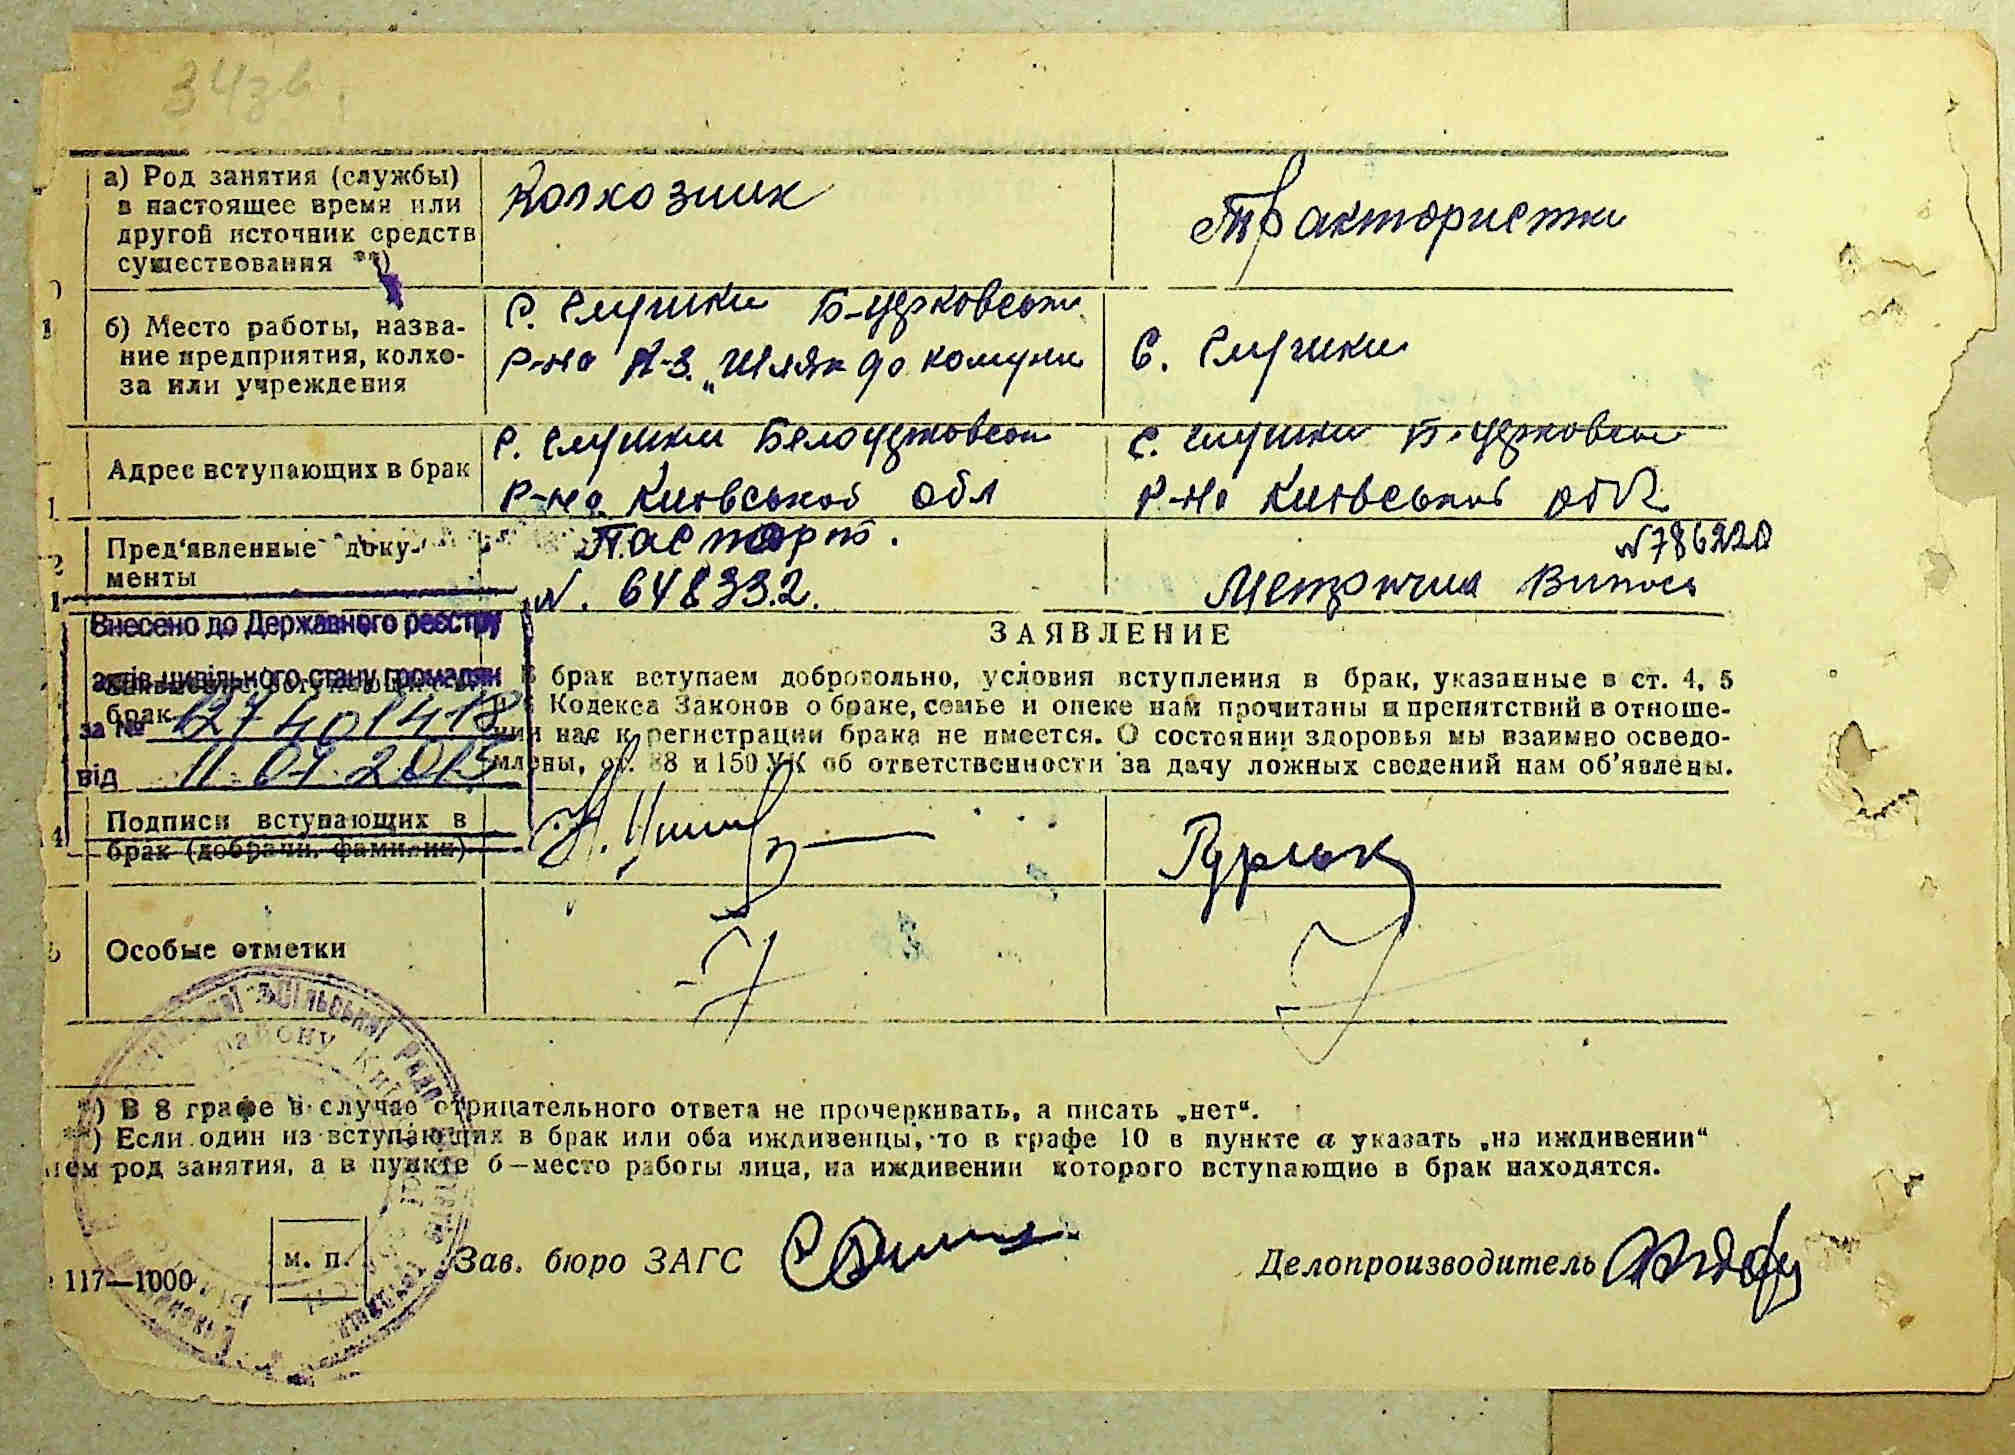 343в
а) Род занятия (службы)
в настоящее время или
другой источник средств
существования **)
Колхозник
Трактористка
б) Место работы, назва-
ние предприятия, колхо-
за или учреждения
С. Глушки Б-церковськ
р-на К-з. „Шлях до комуни
С. Глушки
Адрес вступающих в брак
С. Глушки Белоцерковськ
р-на Київської обл
С. Глушки Б-церковськ
р-на Київської обл
Пред'явленные доку-
менты
Паспорт.
N. 648332.
N786220
Метрична Випись
Внесено до Державного реєстру
актів цивільного стану громадян
за №
від 11.07.2015
брак
ЗАЯВЛЕНИЕ
В брак вступаем добровольно, условия вступления в брак, указанные в ст. 4, 5
Кодекса Законов о браке, семье и опеке нам прочитаны и препятствий в отноше-
нии нас к регистрации брака не имеется. О состоянии здоровья мы взаимно осведо-
млены, ст. 88 и 150 УК об ответственности за дачу ложных сведений нам об'явлены.
Подписи вступающих в
брак (добрачн. фамилии)
Особые отметки
*) В 8 графе в случае отрицательного ответа не прочеркивать, а писать „нет".
**) Если один из вступающих в брак или оба иждивенцы, то в графе 10 в пункте а указать „на иждивении"
род занятия, а в пункте б—место работы лица, на иждивении которого вступающие в брак находятся.
м. п.
Зав. бюро ЗАГС
Делопроизводитель
117—1000